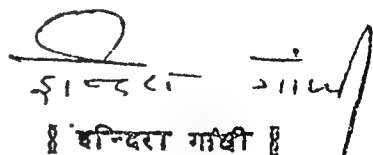 इन्दिरा गांधी
‖ इन्दिरा गांधी ‖